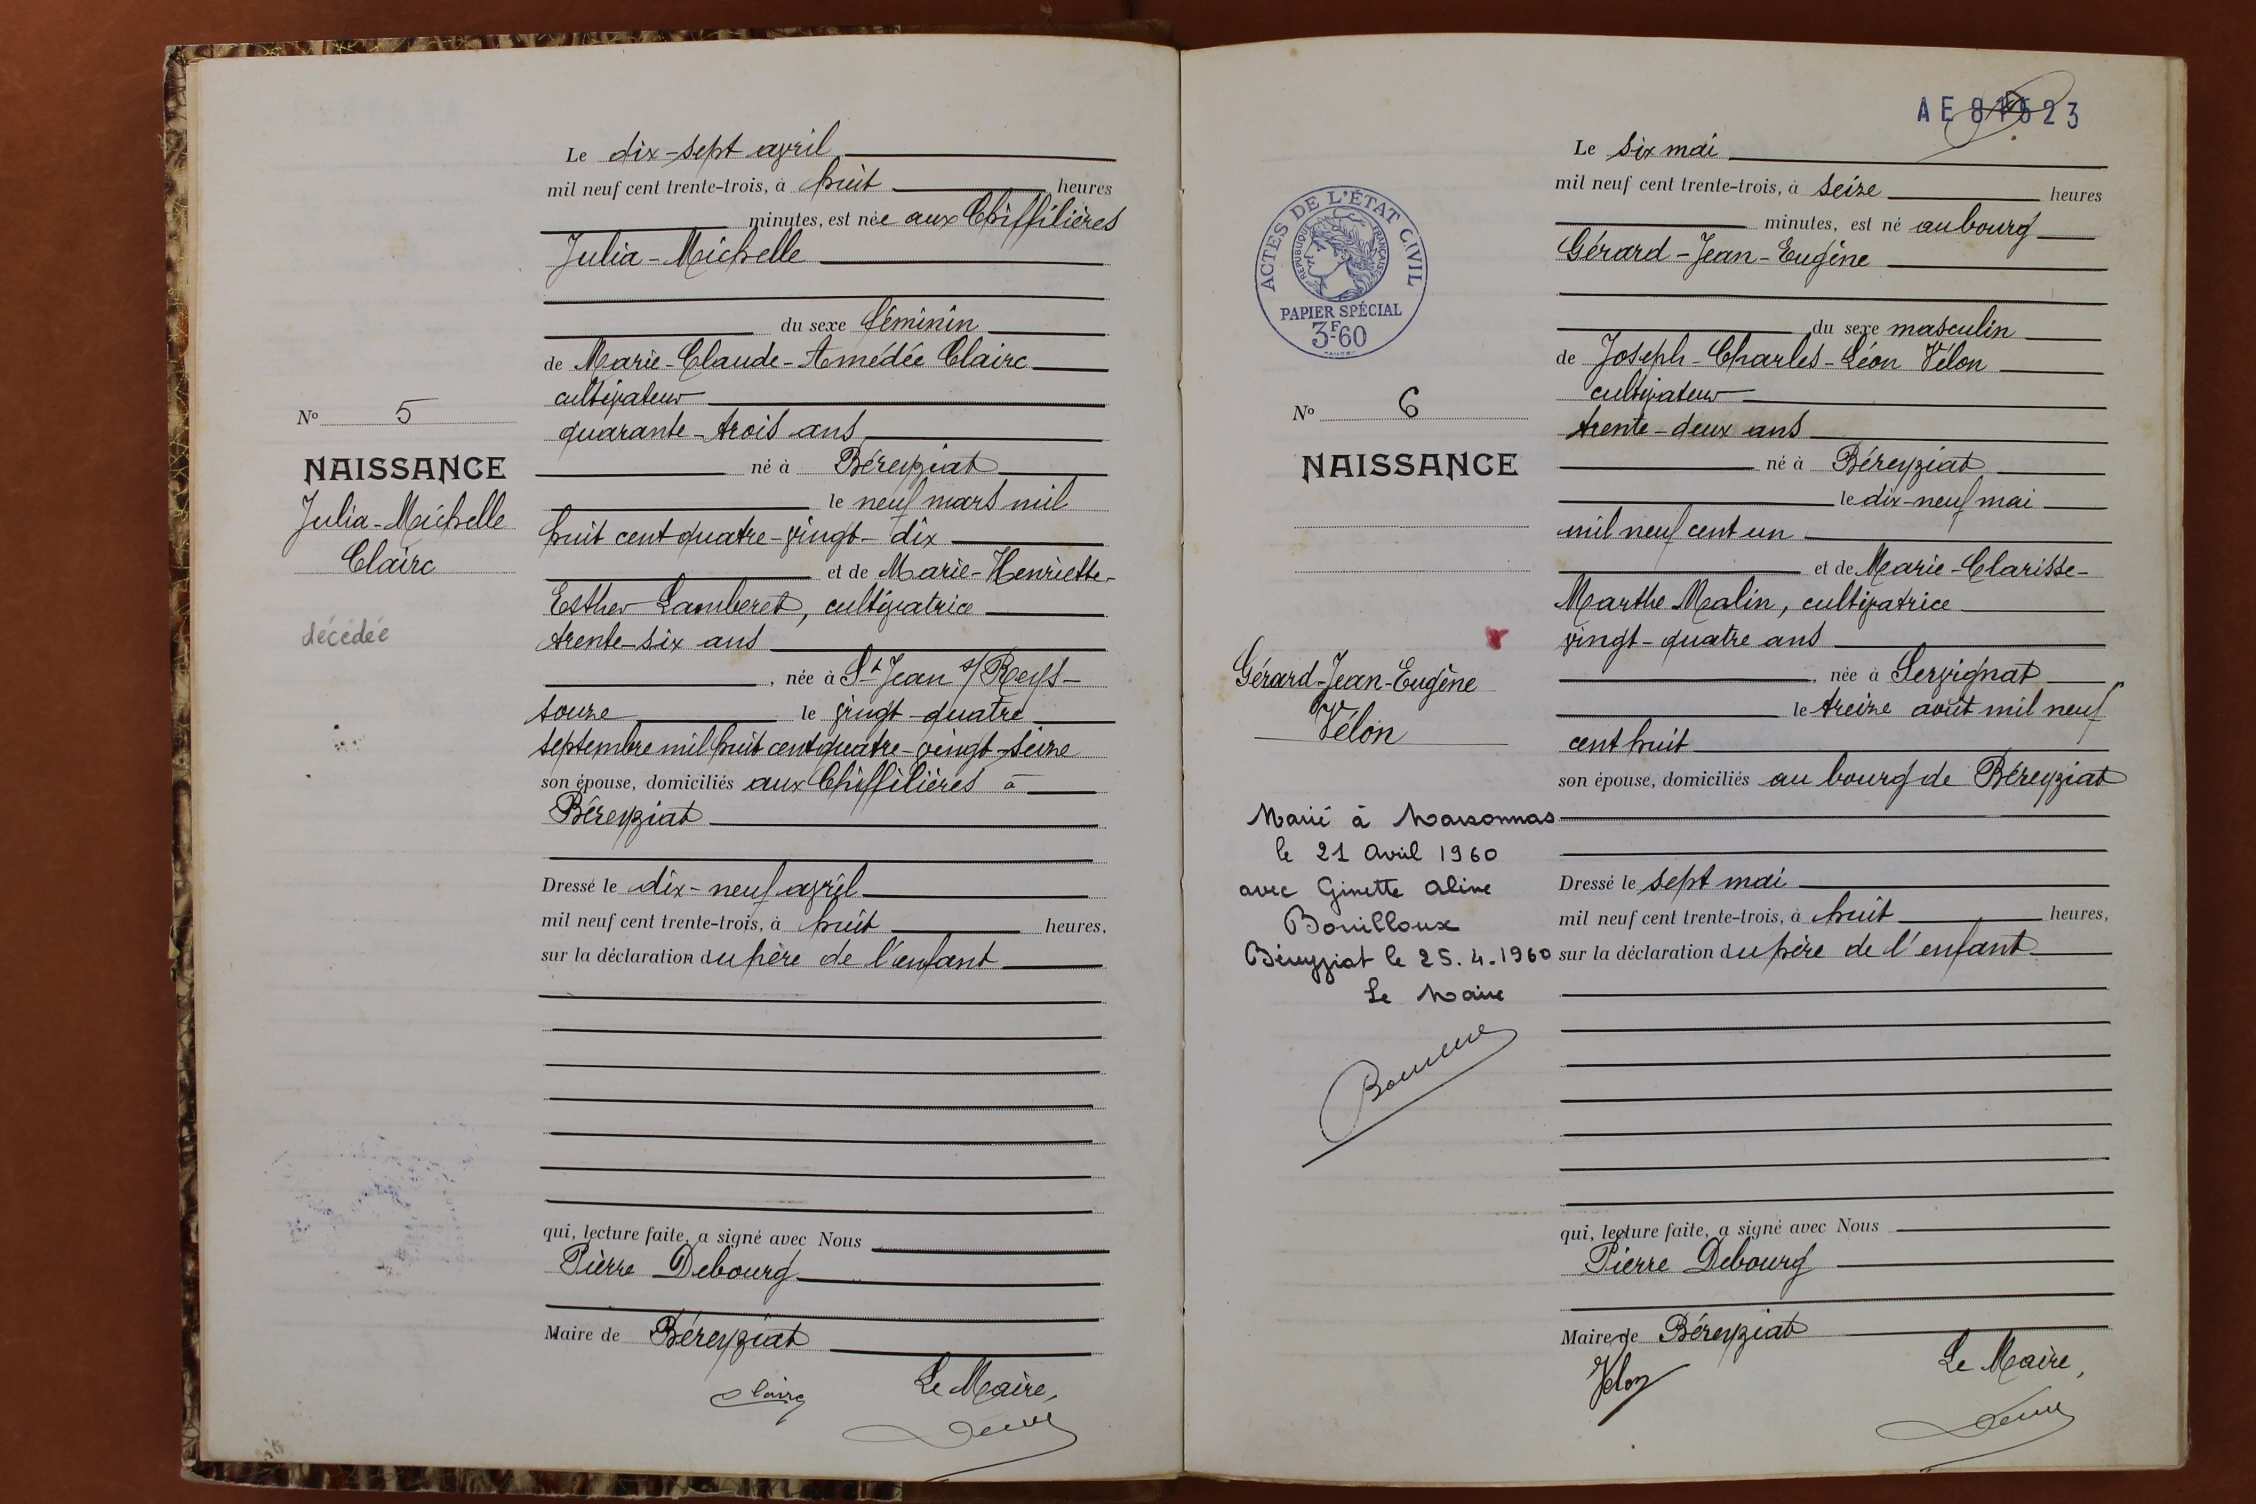 Le dix-sept avril
mil neuf cent trente-trois, à huit heures
minutes, est née aux Chiffilières
Julia-Michelle
du sexe féminin
de Marie-Claude-Amédée Clairc
cultivateur
quarante-trois ans
né à Béreyziat
le neuf mars mil
huit cent quatre-vingt-dix
et de Marie-Henriette-
Esther Lamberet, cultivatrice
trente-six ans
, née à St Jean s/ Reys-
souze le vingt-quatre
septembre mil huit cent quatre-vingt-seize
son épouse, domiciliés aux Chiffilières à
Béreyziat
Dressé le dix-neuf avril
mil neuf cent trente-trois, à huit heures,
sur la déclaration du père de l'enfant
qui, lecture faite, a signé avec Nous
Pierre Debourg
Maire de Béreyziat
Clairc
Le Maire,
No 5
NAISSANCE
Julia-Michelle
Clairc
décédée
AE 81523
ACTES DE L'ÉTAT CIVIL
RÉPUBLIQUE FRANÇAISE
PAPIER SPÉCIAL
3F60
No 6
NAISSANCE
Gérard-Jean-Eugène
Vélon
Marié à Marsonnas
le 21 Avril 1960
avec Ginette Aline
Bouilloux
Béreyziat le 25.4.1960
Le Maire
Le six mai
mil neuf cent trente-trois, à seize heures
minutes, est né au bourg
Gérard-Jean-Eugène
du sexe masculin
de Joseph-Charles-Léon Vélon
cultivateur
trente-deux ans
né à Béreyziat
le dix-neuf mai
mil neuf cent un
et de Marie-Clarisse-
Marthe Malin, cultivatrice
vingt-quatre ans
, née à Servignat
le treize août mil neuf
cent huit
son épouse, domiciliés au bourg de Béreyziat
Dressé le sept mai
mil neuf cent trente-trois, à huit heures,
sur la déclaration du père de l'enfant
qui, lecture faite, a signé avec Nous
Pierre Debourg
Maire de Béreyziat
Velon
Le Maire,